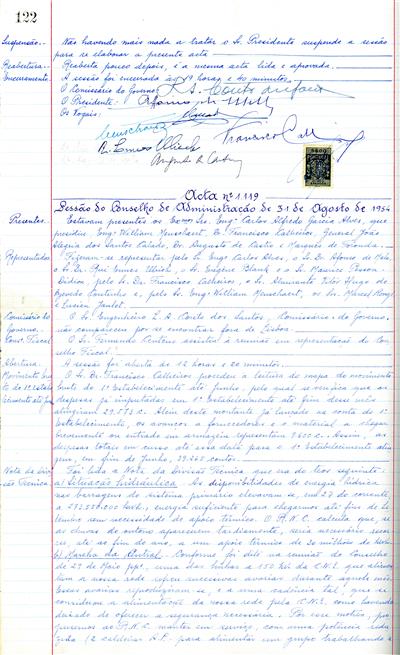 122
Suspensão.. Não havendo mais nada a tratar o Sr. Presidente suspende a sessão
para se elaborar a presente acta
Reabertura.. Reaberta pouco depois, é a mesma acta lida e aprovada.
Encerramento. A sessão foi encerrada às 19 horas e 40 minutos.
O Comissário do Governo:
O Presidente:
Os Vogais:
Acta nº 1.119
Sessão do Conselho de Administração de 31 de Agosto de 1954
Presentes. Estavam presentes os Exmos Srs. Engº Carlos Alfredo Garcia Alves, que
presidiu, Engº William Meuschaert, Dr. Francisco Calheiros, General João
Alegria dos Santos Calado, Dr. Augusto de Castro e Marquês de Ronda.
Representados Fizeram-se representar pelo Sr. Engº Carlos Alves, o Sr. Dr. Afonso de Melo,
o Sr. Dr. Rui Ennes Ulrich, o Sr. Eugène Blank e o Sr. Maurice Besson-
Didion, pelo Sr. Dr. Francisco Calheiros, o Sr. Almirante João Hugo de
Azevedo Coutinho e, pelo Sr. Engº William Meuschaert, os Srs. Marcel
e Lucien Janlet.
Comissário do O Sr. Engenheiro L. A. Couto dos Santos, Comissário do Governo,
Governo. não compareceu por se encontrar fora de Lisboa.
Cons. Fiscal O Sr. Fernando Centeno assistiu à reunião em representação do Con-
selho Fiscal.
Abertura. A sessão foi aberta às 18 horas e 20 minutos.
Movimento O Sr. Dr. Francisco Calheiros procedeu à leitura do mapa do movimento
do 1º estabe- bruto do 1º Estabelecimento até Junho, pelo qual se verifica que as
despesas já imputadas em 1º Estabelecimento até fim desse mês
atingiram 29.873 c. Além deste montante já lançado na conta de 1º
Estabelecimento, os avanços a fornecedores e o material a chegar
brevemente ou entrado em armazém representam 9.600 c. Assim, as
despesas totais em curso até essa data para o 1º Estabelecimento atin-
gem, em fim de Junho, contos.
Nota da Divi- Foi lida a Nota da Divisão Técnica que era do teor seguinte:
são Técnica a) Situação hidráulica. As disponibilidades de energia hídrica
nas barragens do sistema primário elevavam-se, em 27 do corrente,
a kwh., energia suficiente para chegarmos até fins de Se-
tembro sem necessidade de apoio térmico. O R.N.C. calcula que, se
as chuvas do outono aparecerem tardiamente, será necessário recor-
rer, até ao fim do ano, a um apoio térmico de 20 milhões de kwh.
b) Marcha da Central. Conforme foi dito na reunião do Conselho
de 29 de Maio ppº., uma das linhas a 150 kV. da C.N.E. que alimen-
tam a nossa rede sofreu sucessivas avarias durante aquele mês.
Essas avarias reproduziram-se, e a uma cadência tal, que se
considerou a alimentação da nossa rede pela C.N.E. como havendo
deixado de oferecer a segurança necessária. Por esse motivo, pro-
pusemos ao R.N.C. manter em serviço, com uma potência redu-
zida (2 caldeiras A.P. para alimentar um grupo trabalhando a